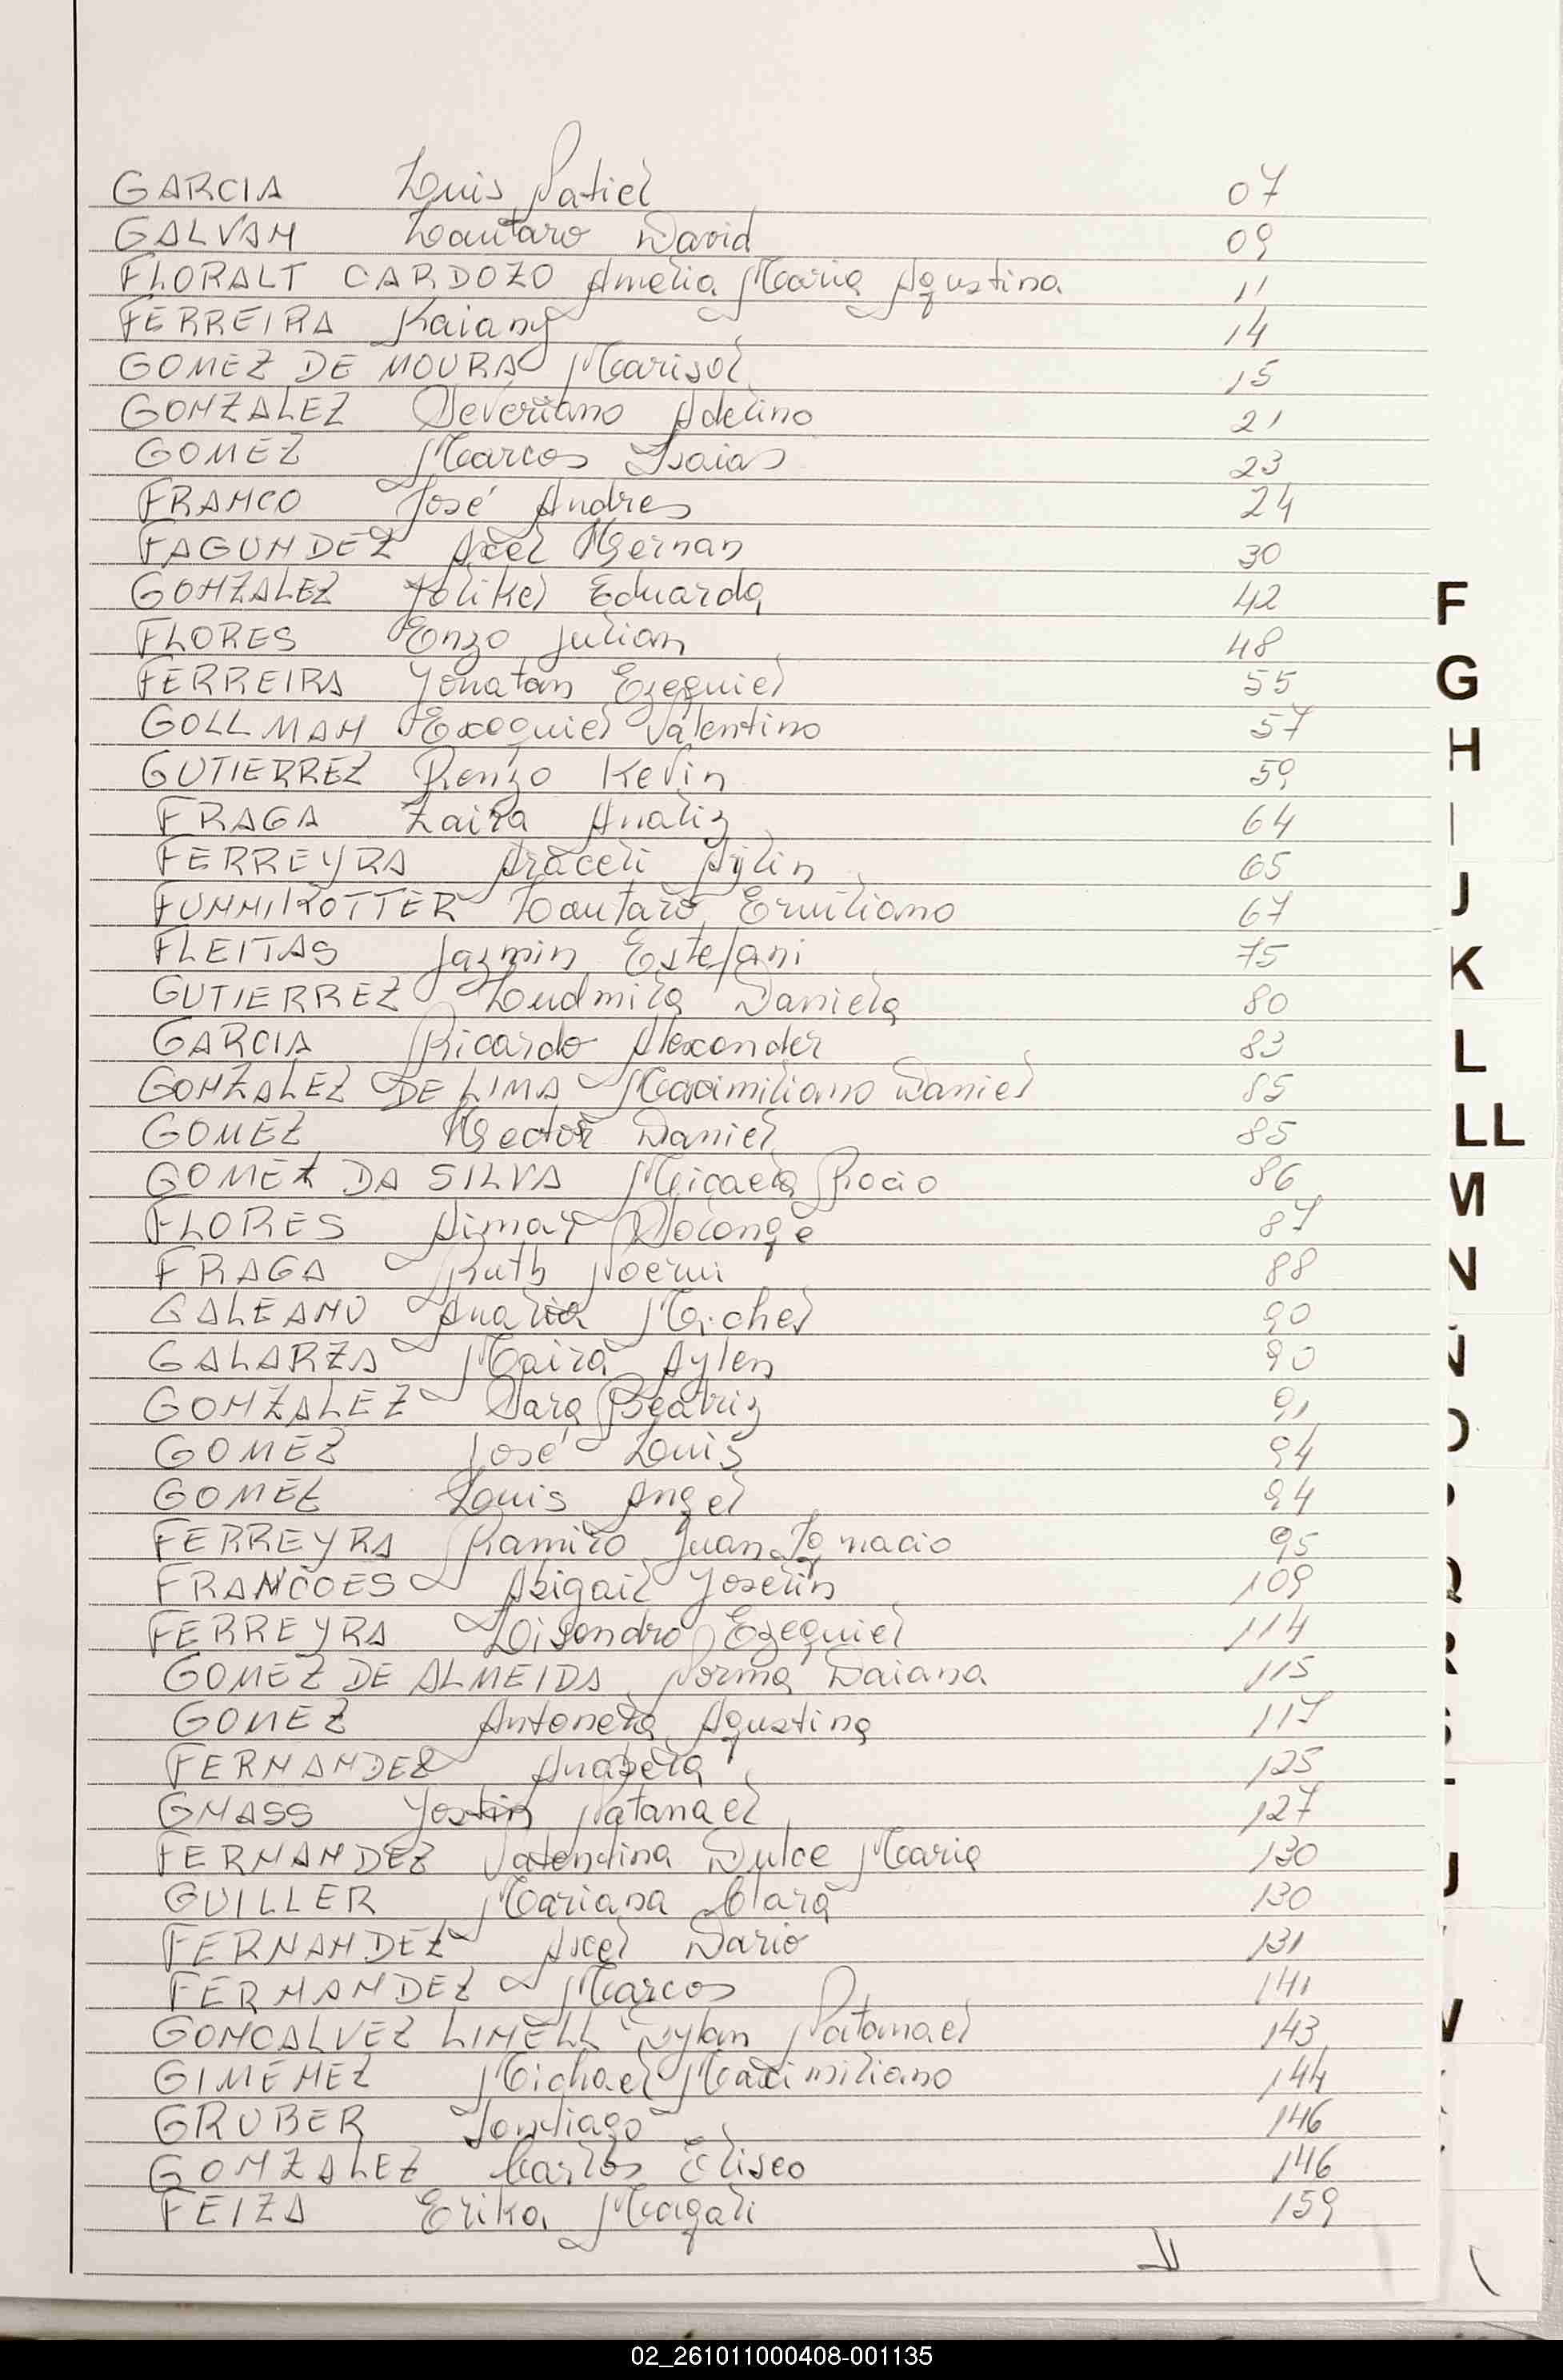 GARCIA Luis Natiel 07
GALVAN Lautaro David 09
FLORALT CARDOZO Amelia Maria Agustina 11
FERREIRA Kaiany 14
GOMEZ DE MOURA Marisol 15
GONZALEZ Severiano Adelino 21
GOMEZ Marcos Isaias 23
FRANCO José Andres 24
FAGUNDEZ Axel Hernan 30
GONZALEZ Eduarda 42
FLORES Enzo Julian 48
FERREIRA Yonatan Ezequiel 55
GOLLMAN Exequiel Valentino 57
GUTIERREZ Renzo Kevin 59
FRAGA Zaira Analiz 64
FERREYRA Araceli Aylin 65
Lautaro Emiliano 67
FLEITAS Jazmin Estefani 75
GUTIERREZ Ludmila Daniela 80
GARCIA Ricardo Alexander 83
GONZALEZ DE LIMA Maximiliano Daniel 85
GOMEZ Hector Daniel 85
GOMEZ DA SILVA Micaela Rocio 86
FLORES Aimar Solange 87
FRAGA Ruth Noemi 88
GALEANO Analia Michel 90
GALARZA Maira Aylen 90
GONZALEZ Sara Beatriz 91
GOMEZ José Luis 94
GOMEZ Luis Angel 94
FERREYRA Ramiro Juan Ignacio 95
FRANCOES Abigail Yoselin 109
FERREYRA Lisandro Ezequiel 114
GOMEZ DE ALMEIDA Norma Daiana 115
GOMEZ Antonela Agustina 117
FERNANDEZ Anabela 125
GNASS Yostin Natanael 127
FERNANDEZ Valentina Dulce Maria 130
GUILLER Mariana Clara 130
FERNANDEZ Axel Dario 131
FERNANDEZ Marcos 141
GONCALVEZ LINELL Dylan Natanael 143
GIMENEZ Michael Maximiliano 144
GRUBER Santiago 146
GONZALEZ Carlos Eliseo 146
FEIZA Erika Magali 159
F
G
H
I
J
K
L
LL
M
N
02_261011000408-001135